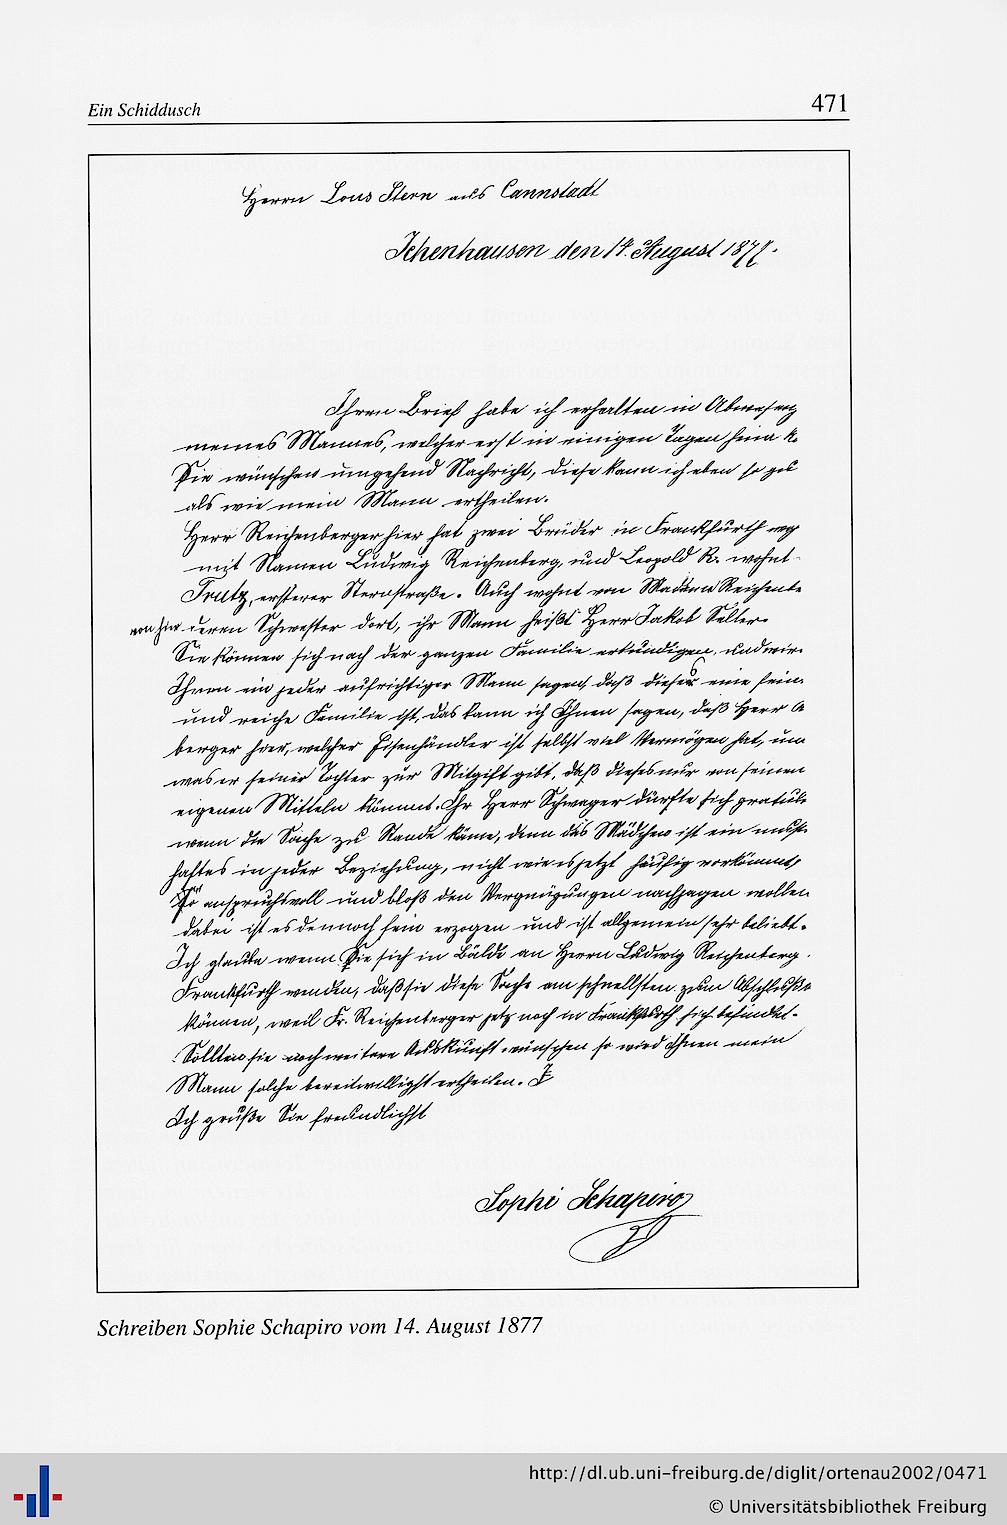 Ein Schiddusch
471
Herrn Lous Stern aus Cannstadt
Ichenhausen den 14. August 1877.
Ihren Brief habe ich erhalten in Abwesenh
meines Mannes, welcher erst in einigen Tagen
Sie wünschen umgehend Nachricht, diese kann ich eben so gut
als wie mein Mann ertheilen.
Herr Reichenberger hier hat zwei Brüder in Frankfurth
mit Namen Ludwig Reichenberg, und Leopold R. wohnt
Trutz, ersterer Sternstraße. Auch wohnt von Madam Reichenbe
von hier deren Schwester dort, ihr Mann heißt Herr Jakob Selter.
Sie können sich nach der ganzen Familie erkundigen, und wir
Ihnen ein jeder aufrichtiger Mann sagen, daß dieses eine fein
und reiche Familie ist, das kann ich Ihnen sagen, daß Herr
berger hier, welcher Eisenhändler ist selbst viel Vermögen hat, un
was er seiner Tochter zur Mitgift gibt, daß dieses nur von seinen
eigenen Mitteln kömmt. Ihr Herr Schwager dürfte sich gratuli
wenn die Sache zu Stande käme, denn das Mädchen ist ein muster
haftes in jeder Beziehung, nicht wie es jetzt häufig vorkömmt,
anspruchsvoll und bloß den Vergnügungen nachjagen wollen
dabei ist es dennoch fein erzogen und ist allgemein sehr beliebt.
Ich glaube wenn Sie sich in Bälde an Herrn Ludwig Reichenberg
Frankfurth wenden, daß sie diese Sache am schnellsten zum Abschluß
können, weil Fr. Reichenberger jetz noch in Frankfurth sich befindet.
Sollten sie noch weitere Auskunft wünschen so wird Ihnen mein
Mann solche bereitwilligst ertheilen.
Ich grüße Sie freundlichst
Sophi Schapiro
Schreiben Sophie Schapiro vom 14. August 1877
http://dl.ub.uni-freiburg.de/diglit/ortenau2002/0471
© Universitätsbibliothek Freiburg